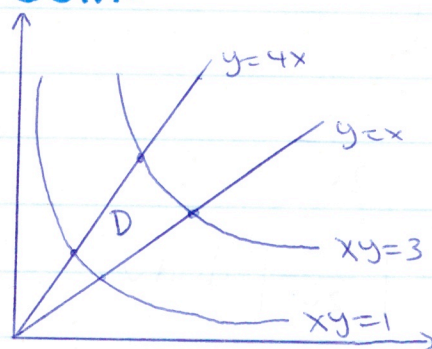 y=4x
y=x
D
xy=3
xy=1